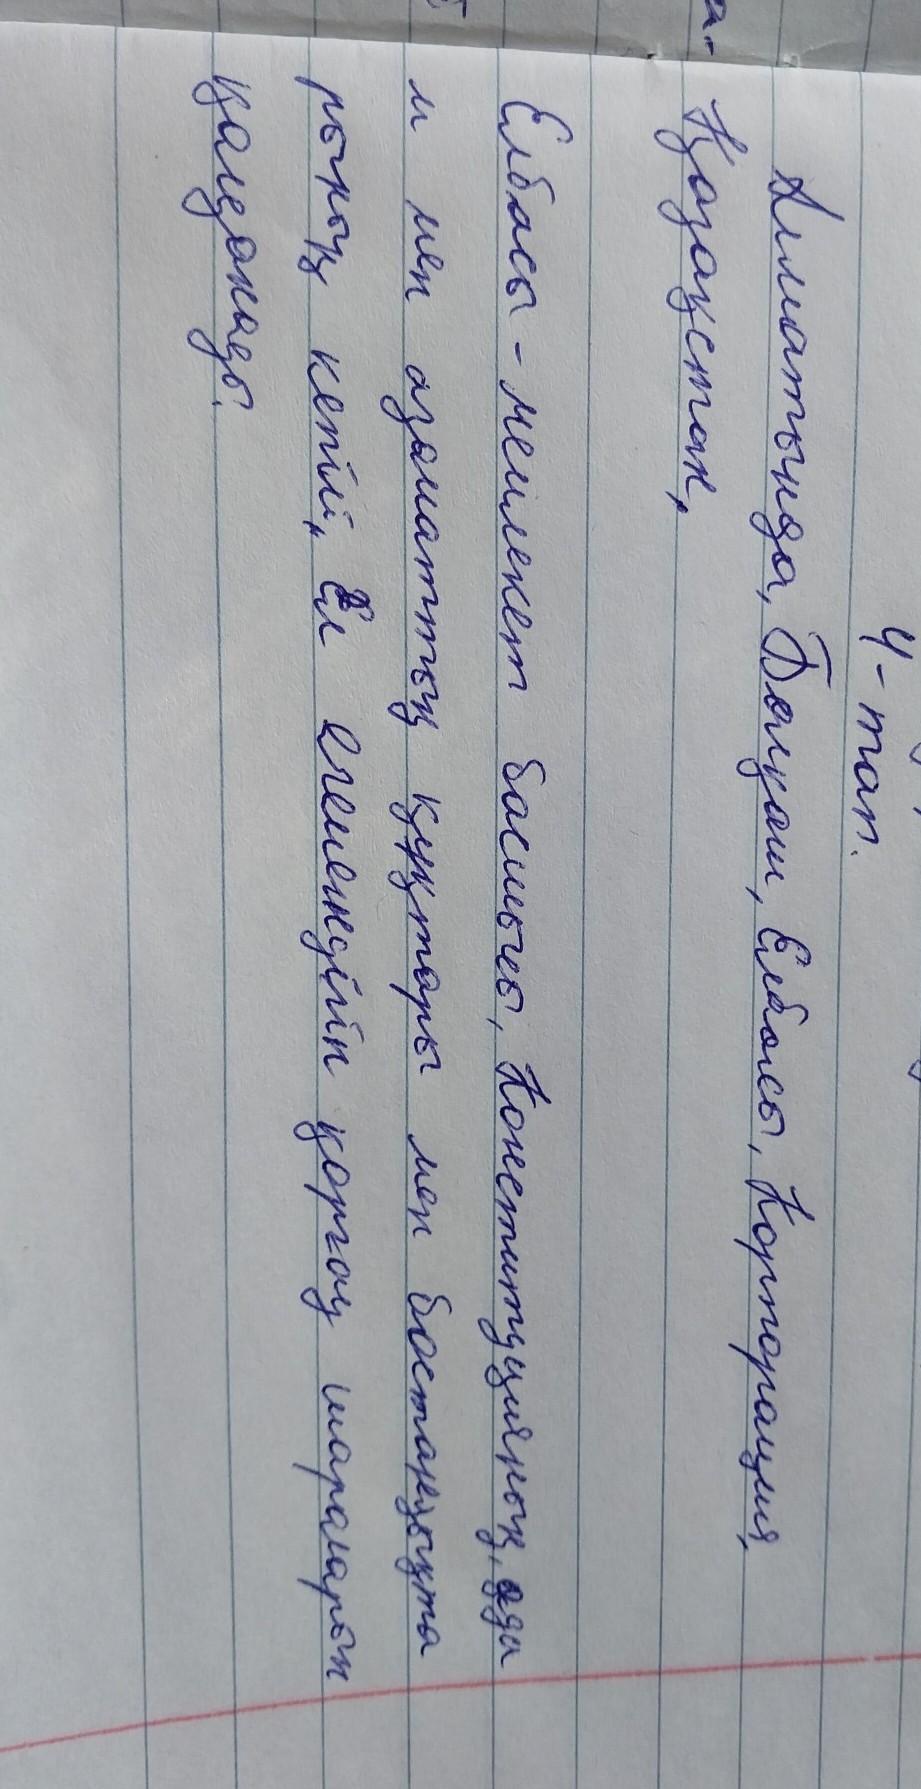 4-тап.
Алматында, Балқаш, Елбасы, Корпорация,
Қазақстан,
Елбасы - мемлекет басшысы, Конституяның, ада
м мен азаматтық құқтары мен бостандықта
рының кепілі, Ел егемендігін қорғау шараларын
қалдонады.